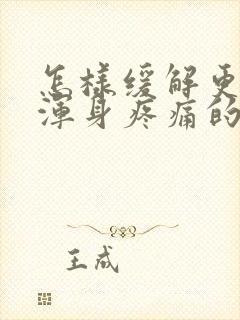 怎樣緩解更
渾身疼痛的
王成